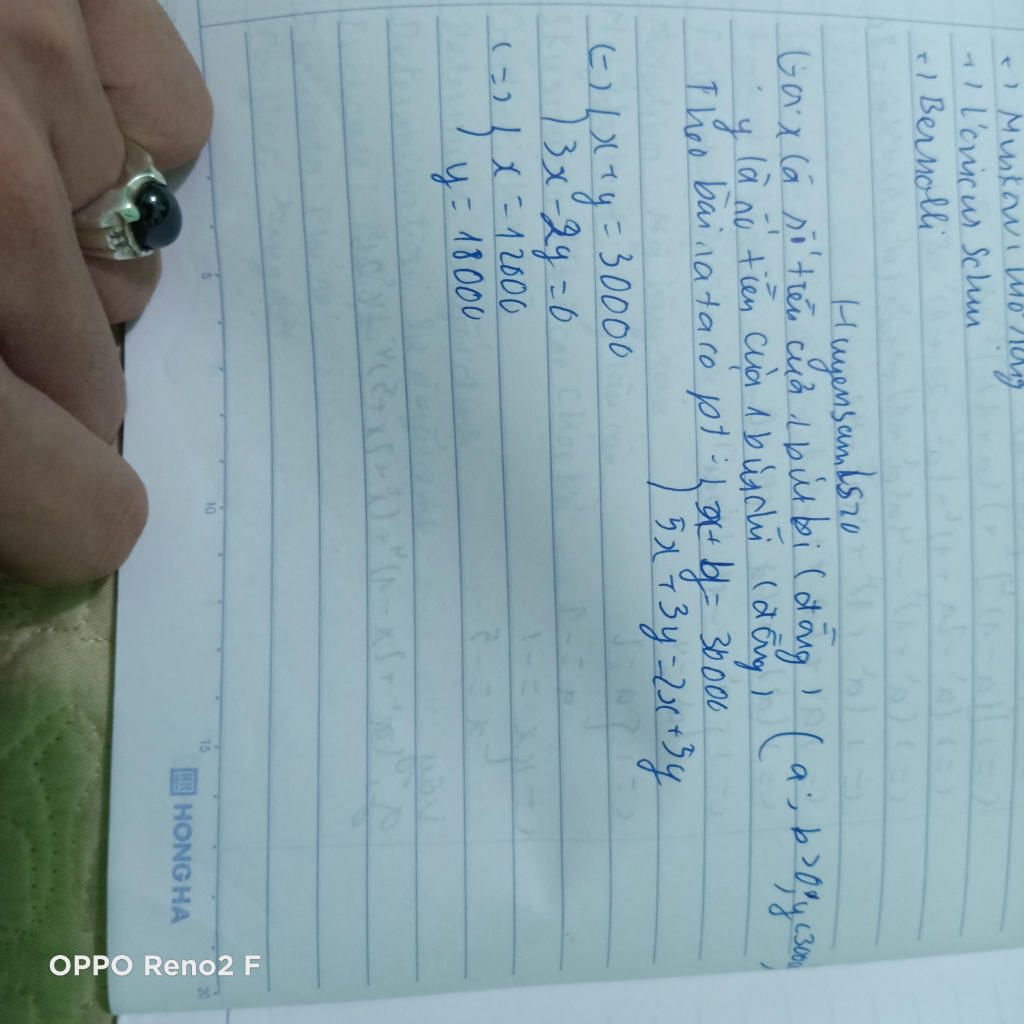 +) Muskavi
+) L'onicus Schui
+) Bernolli
Huyensamls20
Gọi x là số tiền của 1 bút bi (đồng) (a; b > 0; x, y < 30000)
y là số tiền của 1 bút chì (đồng)
Theo bài ra ta có pt: { x + y = 30000
5x + 3y = 2x + 5y
(=) { x + y = 30000
3x - 2y = 0
(=) { x = 12000
y = 18000
HONGHA
5
10
15
20
OPPO Reno2 F